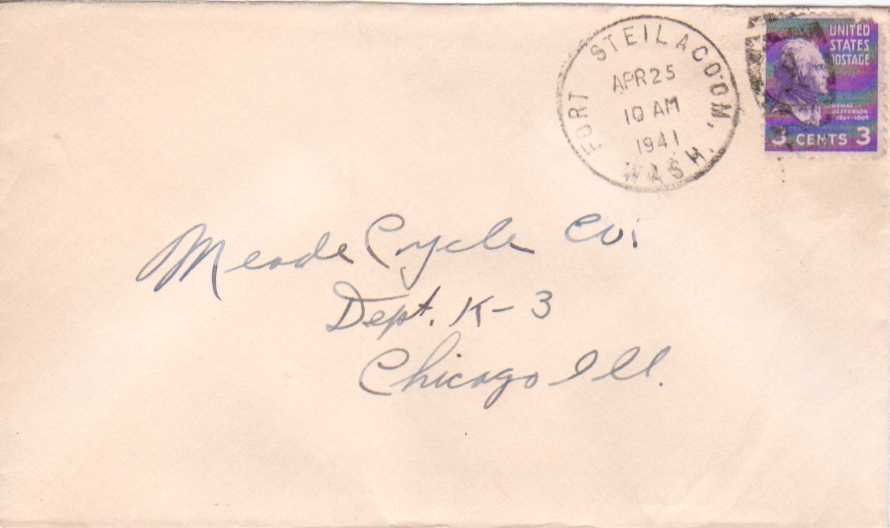 FORT STEILACOOM, WASH.
APR 25
10 AM
1941
UNITED
STATES
POSTAGE
THOMAS
JEFFERSON
1801-1809
3 CENTS 3
Meade Cycle Co.
Dept. K-3
Chicago Ill.